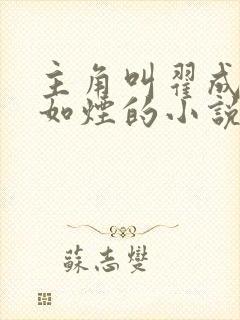 主角叫翟成
如煙的小說
蘇志燮